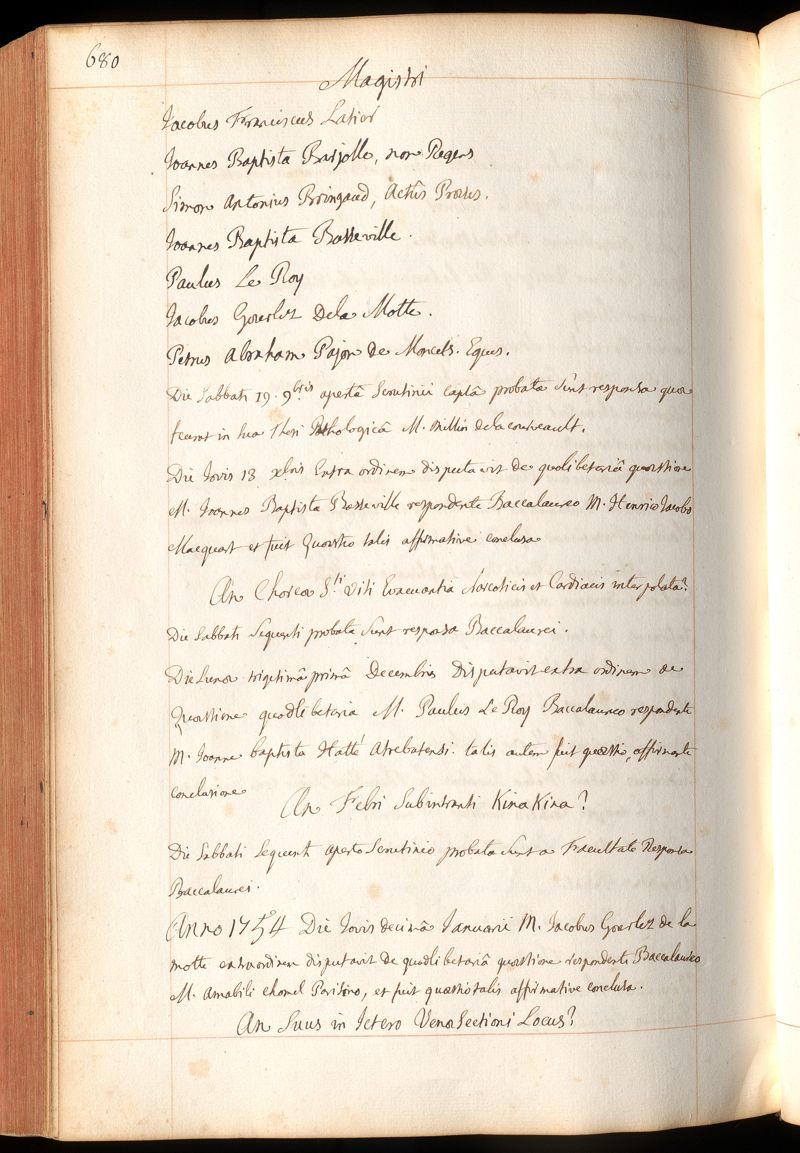 680
Magistri
Jacobus Franciscus Latier
Joannes Baptista Barjolle, non Regens
Simon Antonius Bringaud, Actûs Præses.
Joannes Baptista Basseville.
Paulus Le Roy
Jacobus Gourlez De la Motte.
Petrus Abraham Pajon de Moncets. Eques.
Die Sabbati 19. 9bris apertâ Scrutinii captâ probata sunt responsa quæ
fecerat in sua Thesi Pathologicâ M. Millin de la courveault.
Die Jovis 13 xbris Extra ordinem disputavit de quolibetariâ quæstione
M. Joannes Baptista Basseville respondente Baccalaureo M. Henrico Jacobo
Macquart et fuit Quæstio talis affirmative conclusa
An Choreæ Sti Viti Evacuantia Narcoticis et Cardiacis interpolata?
Die Sabbati Sequenti probata sunt responsa Baccalaurei.
Die Lunæ trigesimâ primâ Decembris Disputavit extra ordinem de
Quæstione quodlibetaria M. Paulus Le Roy Baccalaureo respondente
M. Joanne baptista Hatté Atrebatensi. talis autem fuit quæstio, affirmante
conclusione
An Febri Subintranti Kina Kina?
Die Sabbati Sequenti aperto Scrutinio probata sunt a Facultate Responsa
Baccalaurei.
Anno 1754 Die Jovis decimâ Januarii M. Jacobus Gourlez de la
motte extraordinem disputavit de quodlibetariâ quæstione respondente Baccalaureo
M. Amabili Chomel Parisino, et fuit quæstio talis affirmative conclusa.
An Suus in Ictero Venæ Sectioni Locus?